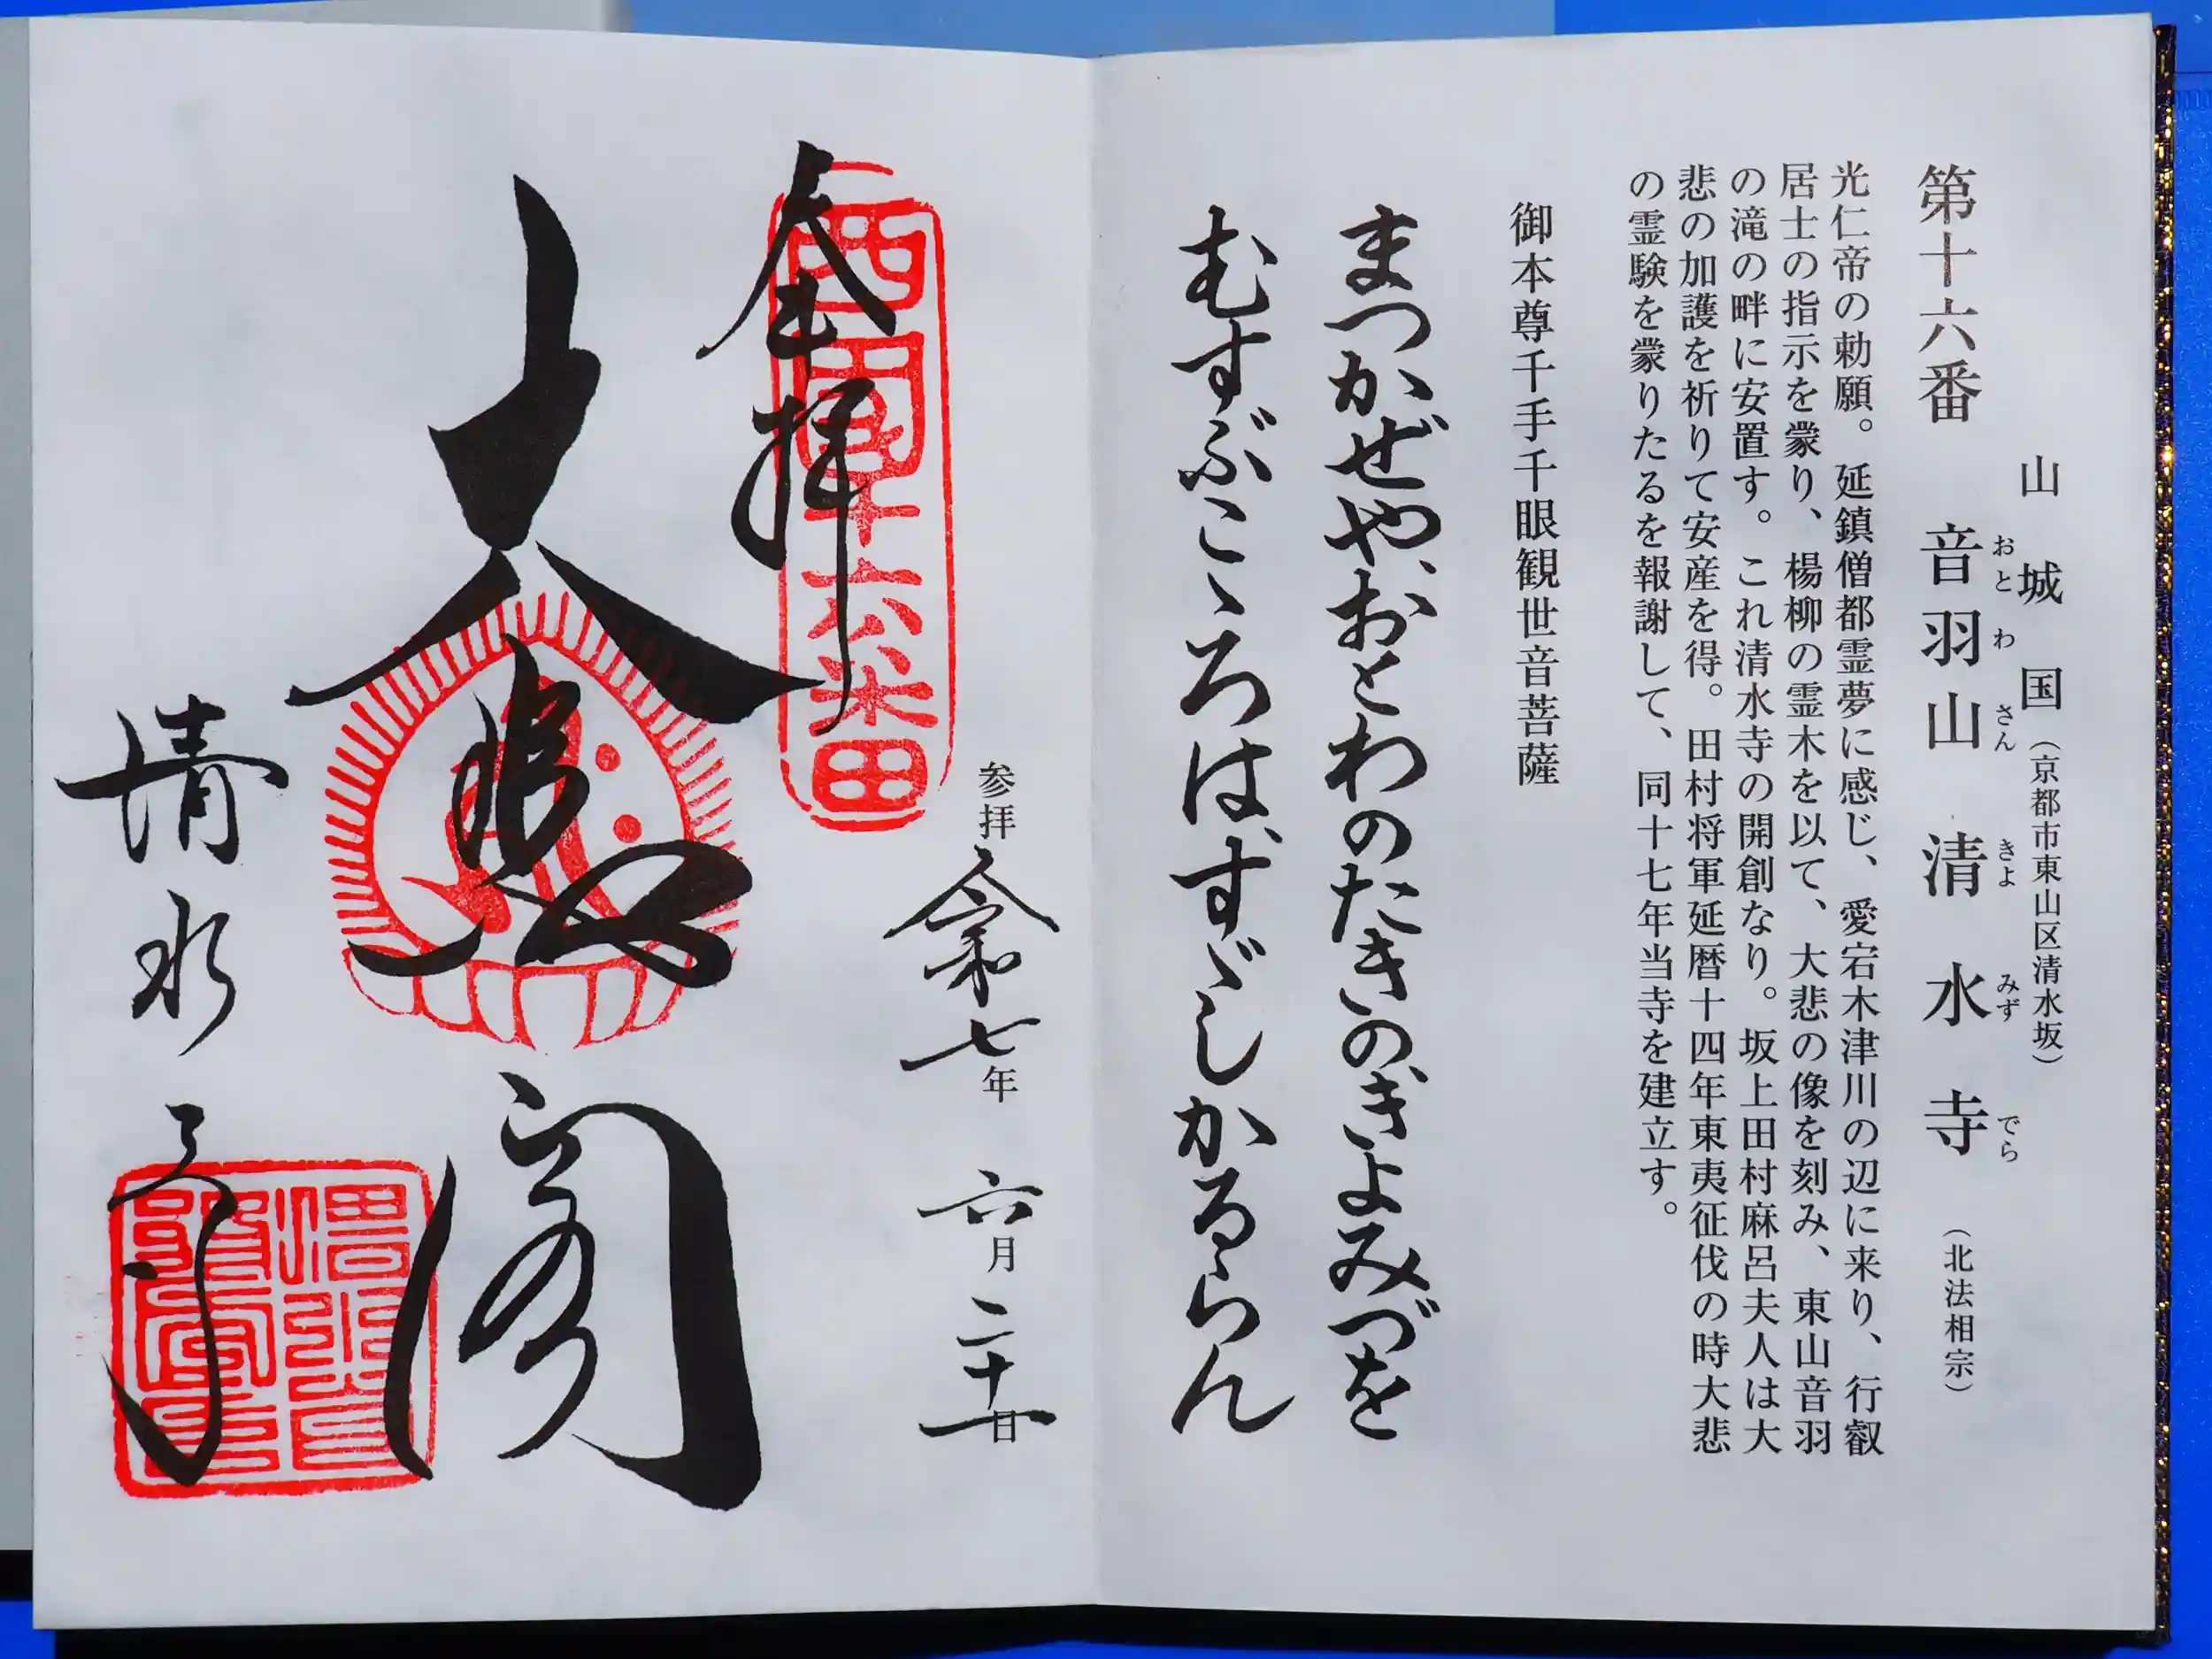 山城国（京都市東山区清水坂）
第十六番 音羽山 清水寺（北法相宗）
おとわさん きよみずでら
光仁帝の勅願。延鎮僧都霊夢に感じ、愛宕木津川の辺に来り、行叡
居士の指示を蒙り、楊柳の霊木を以て、大悲の像を刻み、東山音羽
の滝の畔に安置す。これ清水寺の開創なり。坂上田村麻呂夫人は大
悲の加護を祈りて安産を得。田村将軍延暦十四年東夷征伐の時大悲
の霊験を蒙りたるを報謝して、同十七年当寺を建立す。
御本尊千手千眼観世音菩薩
まつかぜや、おとわのたきのきよみづを
むすぶこゝろは、すゞしかるらん
奉拝
西国十六番
参拝 令和七年 六月 二十一日
大悲閣
清水寺